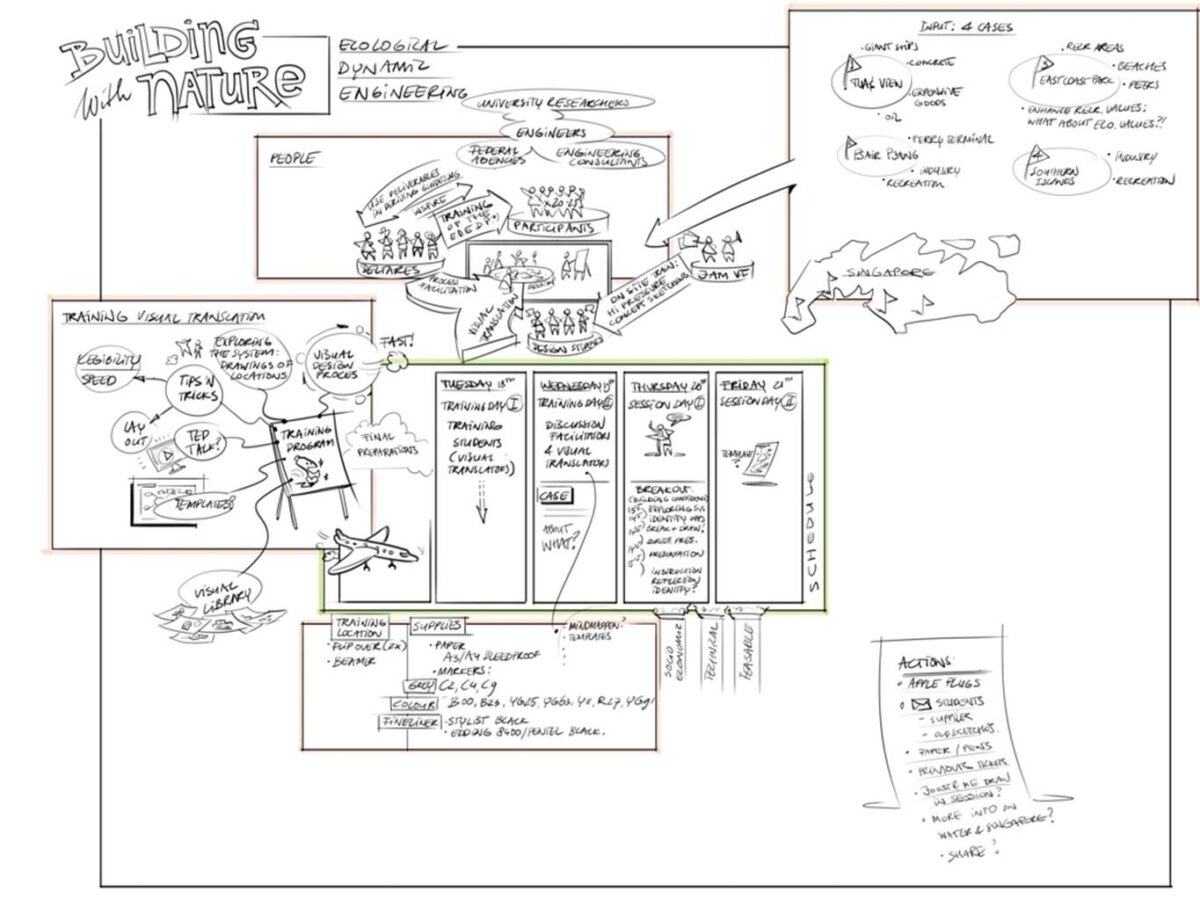 BUILDING
With NATURE
ECOLOGICAL
DYNAMIZ
ENGINEERING
UNIVERSITY RESEARCHERS
ENGINEERS
FEDERAL
AGENCIES
ENGINEERING
CONSULTANTS
PEOPLE
USE DELIVERABLES
IN DRIVING GUIDELING
INSPIRE
TRAINING
OF THE
x20-25
PARTICIPANTS
DELTARES
PROCESS
FACILITATION
VISUAL
TRANSLATION
DESIGN
ON SITE TRAIN:
HI PRESSURE
CONCEPT SKETCHING
JAM VF
INPUT: 4 CASES
• GIANT SHIPS
1
VIEW
• CONCRETE
• EXPENSIVE
GOODS
• OIL
REKR AREAS
3
EAST COAST PARK
• BEACHES
• PEERS
• ENHANCE REKR. VALUES;
WHAT ABOUT ECO. VALUES?!
• FERRY TERMINAL
• INDUSRY
• RECREATION
4
SOUTHERN
ISLANDS
• INDUSRY
• RECREATION
SINGAPORE
TRAINING VISUAL TRANSLATION
LEGIBILITY
SPEED
TIPS 'N
TRICKS
EXPLORING
THE SYSTEM:
DRAWINGS OF
LOCATIONS
VISUAL
DESIGN
PROCES
FAST!
LAY
OUT
TED
TALK?
TRAINING
PROGRAM
TEMPLATES
VISUAL
LIBRARY
FINAL
PREPARATIONS
TUESDAY 18TH
TRAINING DAY I
TRAINING
STUDENTS
(VISUAL
TRANSLATORS)
WEDNESDAY 19TH
TRAINING DAY II
DISCUSSION
FACILITATORS
& VISUAL
TRANSLATORS
CASE
ABOUT
WHAT?
THURSDAY 20TH
SESSION DAY I
BREAKOUT
EXPLORING SYS
IDENTIFY OPPS
BREAK + DRAW!
BRIEF PRES.
PRESENTATION
INSTRUCTION
IDENTIFY?
FRIDAY 21TH
SESSION DAY II
TEMPLATE
?
SCHEDULE
TRAINING
LOCATION
• FLIPOVER (2x)
• BEAMER
SUPPLIES
• PAPER
A3/A4 BLEEDPROOF
• MARKERS:
GREY C2, C4, C9
COLOUR B00, B23, YG25, YG63, Y11, R27, YG91
FINELINER • STYLIST BLACK
• EDDING 8400/PENTEL BLACK.
• MINDMAPPEN?
• TEMPLATES
SOCIO
ECONOMIZ
TECHNICAL
FEASABLE
ACTIONS:
• APPLE PLUGS
STUDENTS
- SUPPLIES
- OLD SKETCHES
• PAPER / PENS
• PRINTOUTS TICKETS
• JOOST & ME DRAW
IN SESSION?
• MORE INFO ON
WATER & SINGAPORE?
• SHARE?